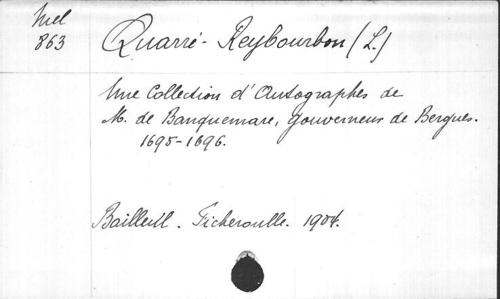 Mel
863
Quarré-Reybourbon (L.)
Une Collection d'Autographes de
M. de Banquemare, Gouverneur de Bergues.
1695-1696.
Bailleul. Ficheroulle. 1904.